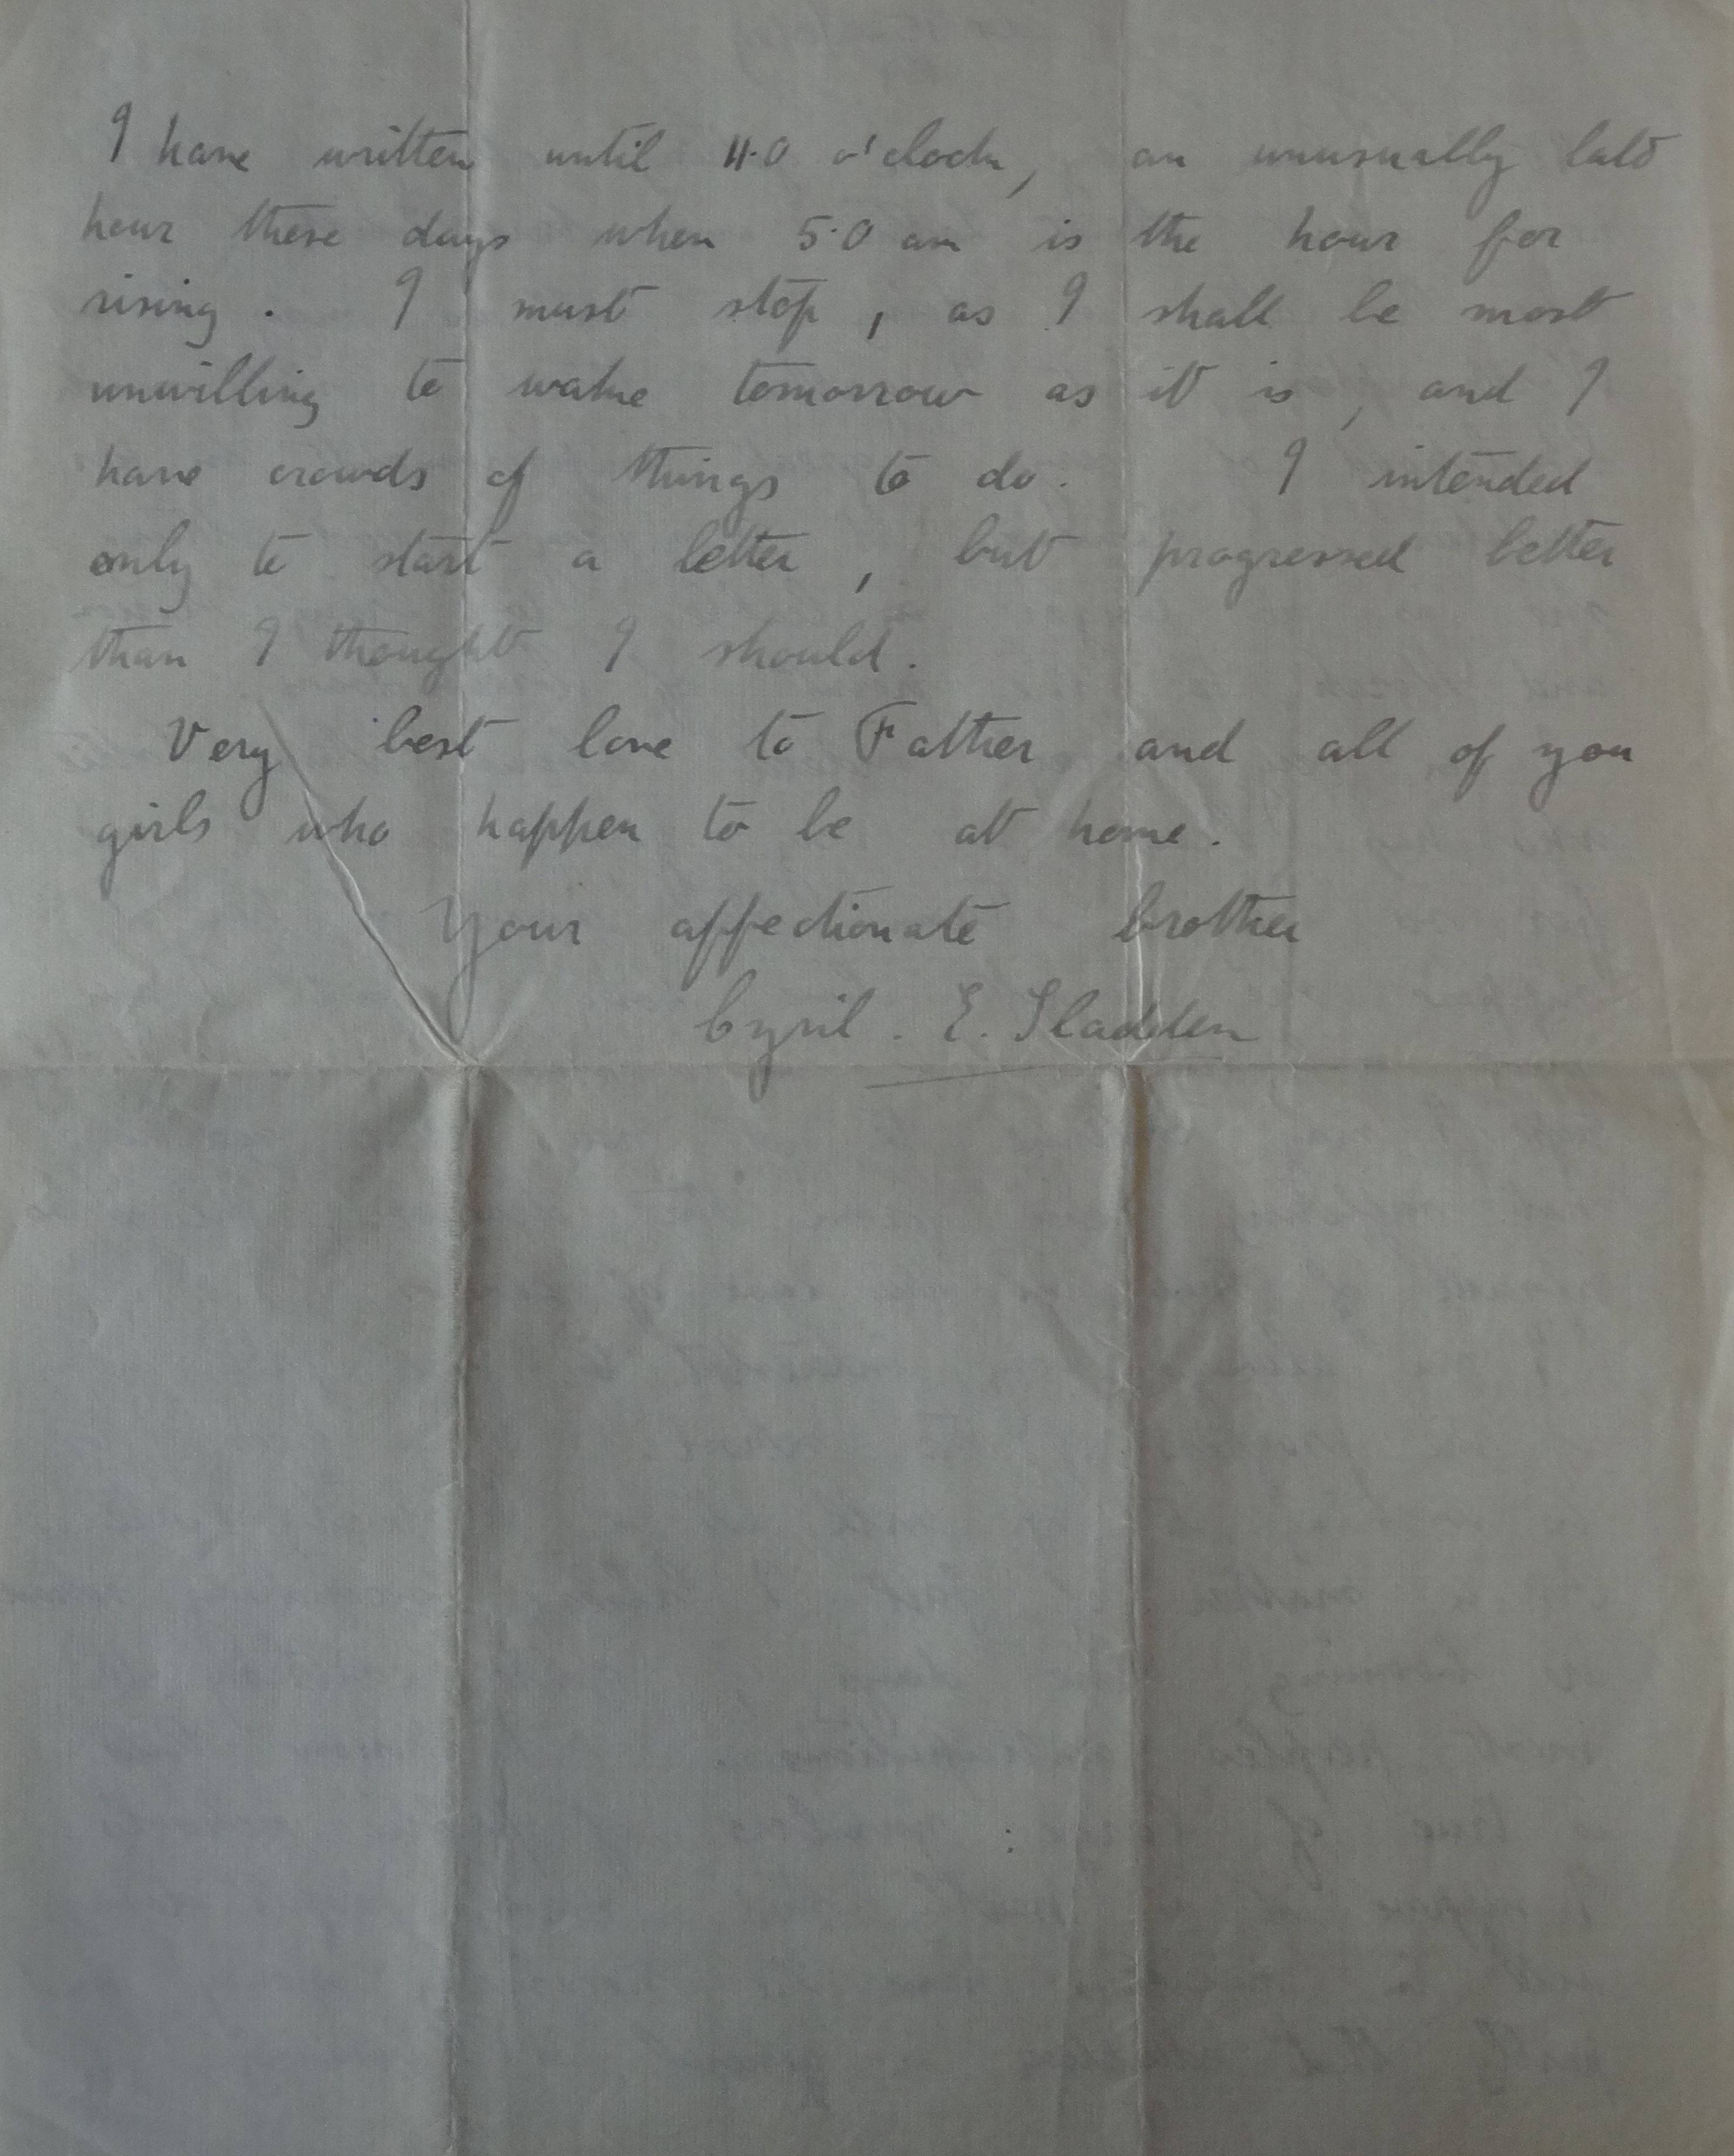 I have written until 11.0 o'clock, an unusually late
hour these days when 5.0 am is the hour for
rising. I must stop, as I shall be most
unwilling to wake tomorrow as it is, and I
have crowds of things to do. I intended
only to start a letter, but progressed better
than I thought I should.
Very best love to Father and all of you
girls who happen to be at home.
Your affectionate brother
Cyril. E. Sladden